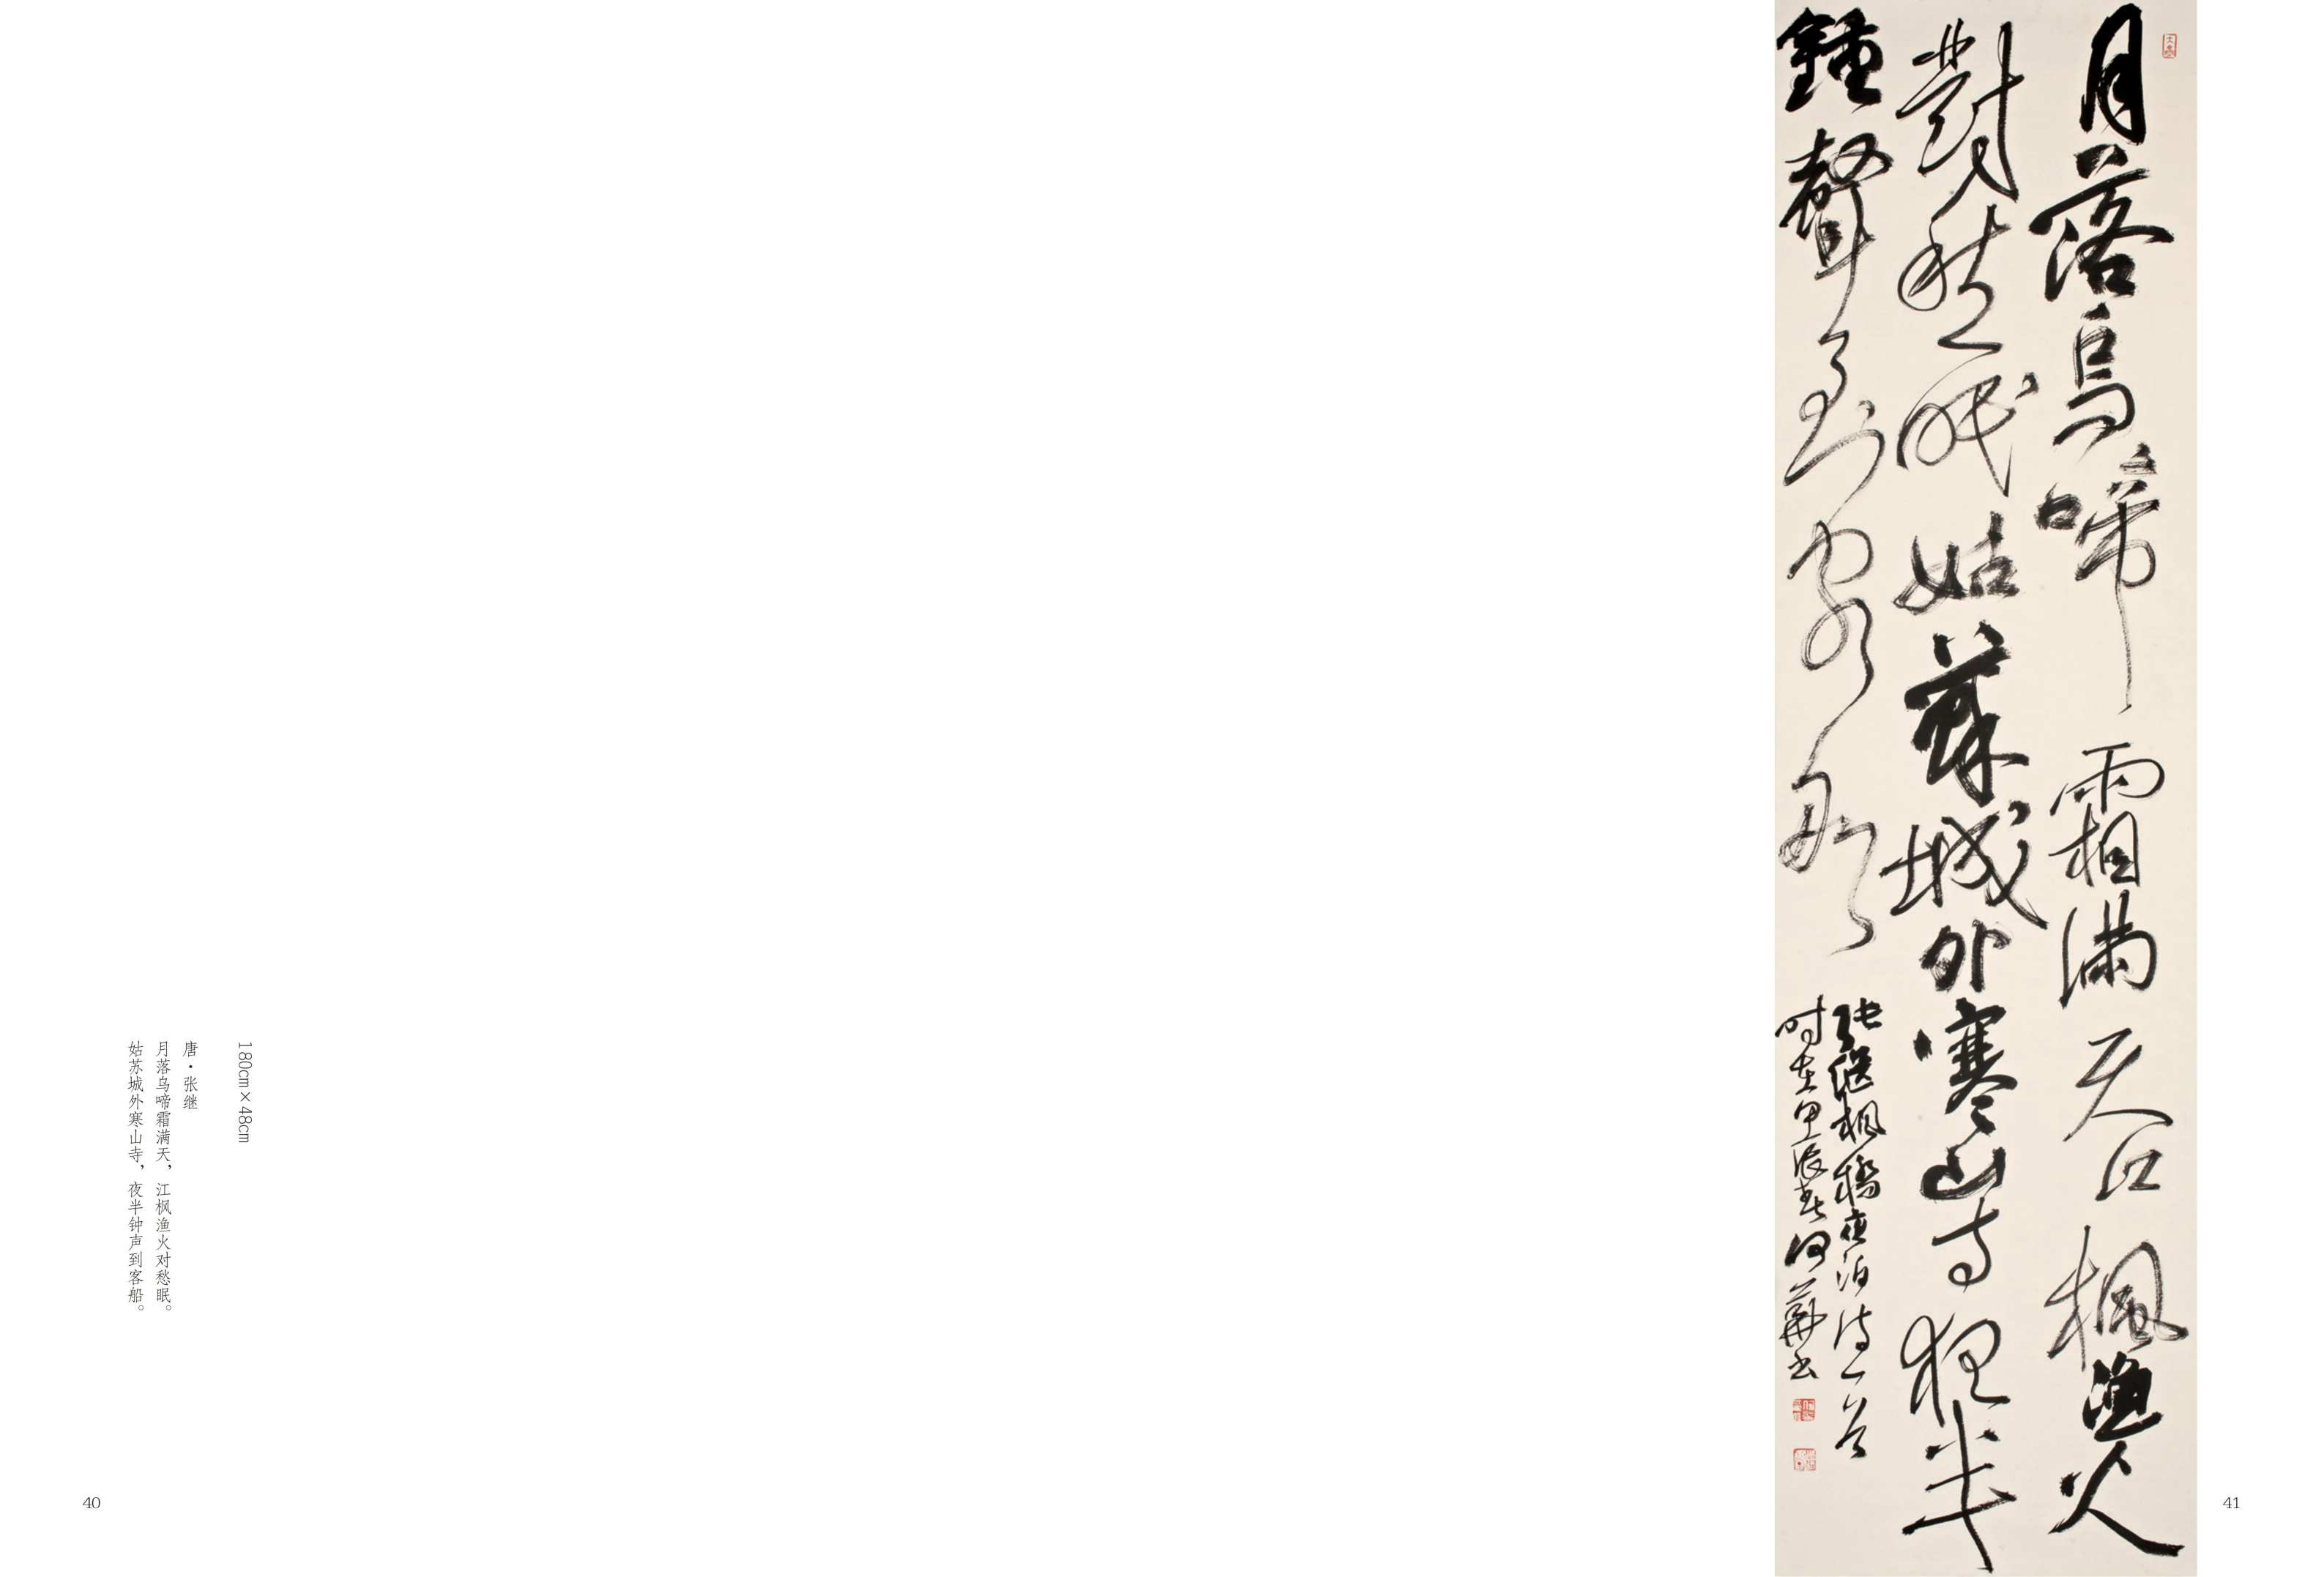 180cm×48cm
唐·张继
月落乌啼霜满天，江枫渔火对愁眠。
姑苏城外寒山寺，夜半钟声到客船。
40
月落烏啼霜滿天江楓漁火
對愁眠姑蘇城外寒山寺夜半
鍾聲到客船
張繼楓橋夜泊詩一首
时在甲辰春何书
41